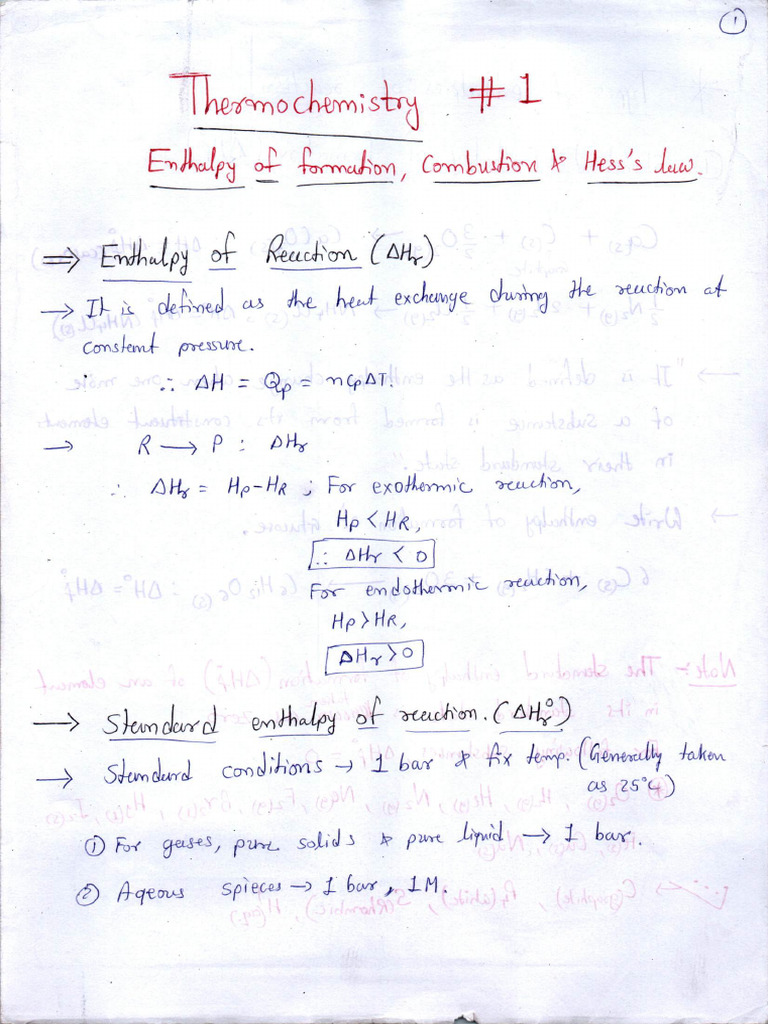 1
Thermochemistry #1
Enthalpy of formation, Combustion & Hess's law.
⇒ Enthalpy of Reaction (ΔHr)
→ It is defined as the heat exchange during the reaction at
constant pressure.
∴ ΔH = Qp = nCpΔT.
→ R → P : ΔHr
∴ ΔHr = Hp-HR ; For exothermic reaction,
Hp < HR,
∴ ΔHr < 0
For endothermic reaction,
Hp > HR,
ΔHr > 0
→ Standard enthalpy of reaction. (ΔHr°)
→ Standard conditions → 1 bar & fix temp. (Generally taken
as 25°C)
① For gases, pure solids & pure liquid → 1 bar.
② Aqeous spieces → 1 bar, 1M.